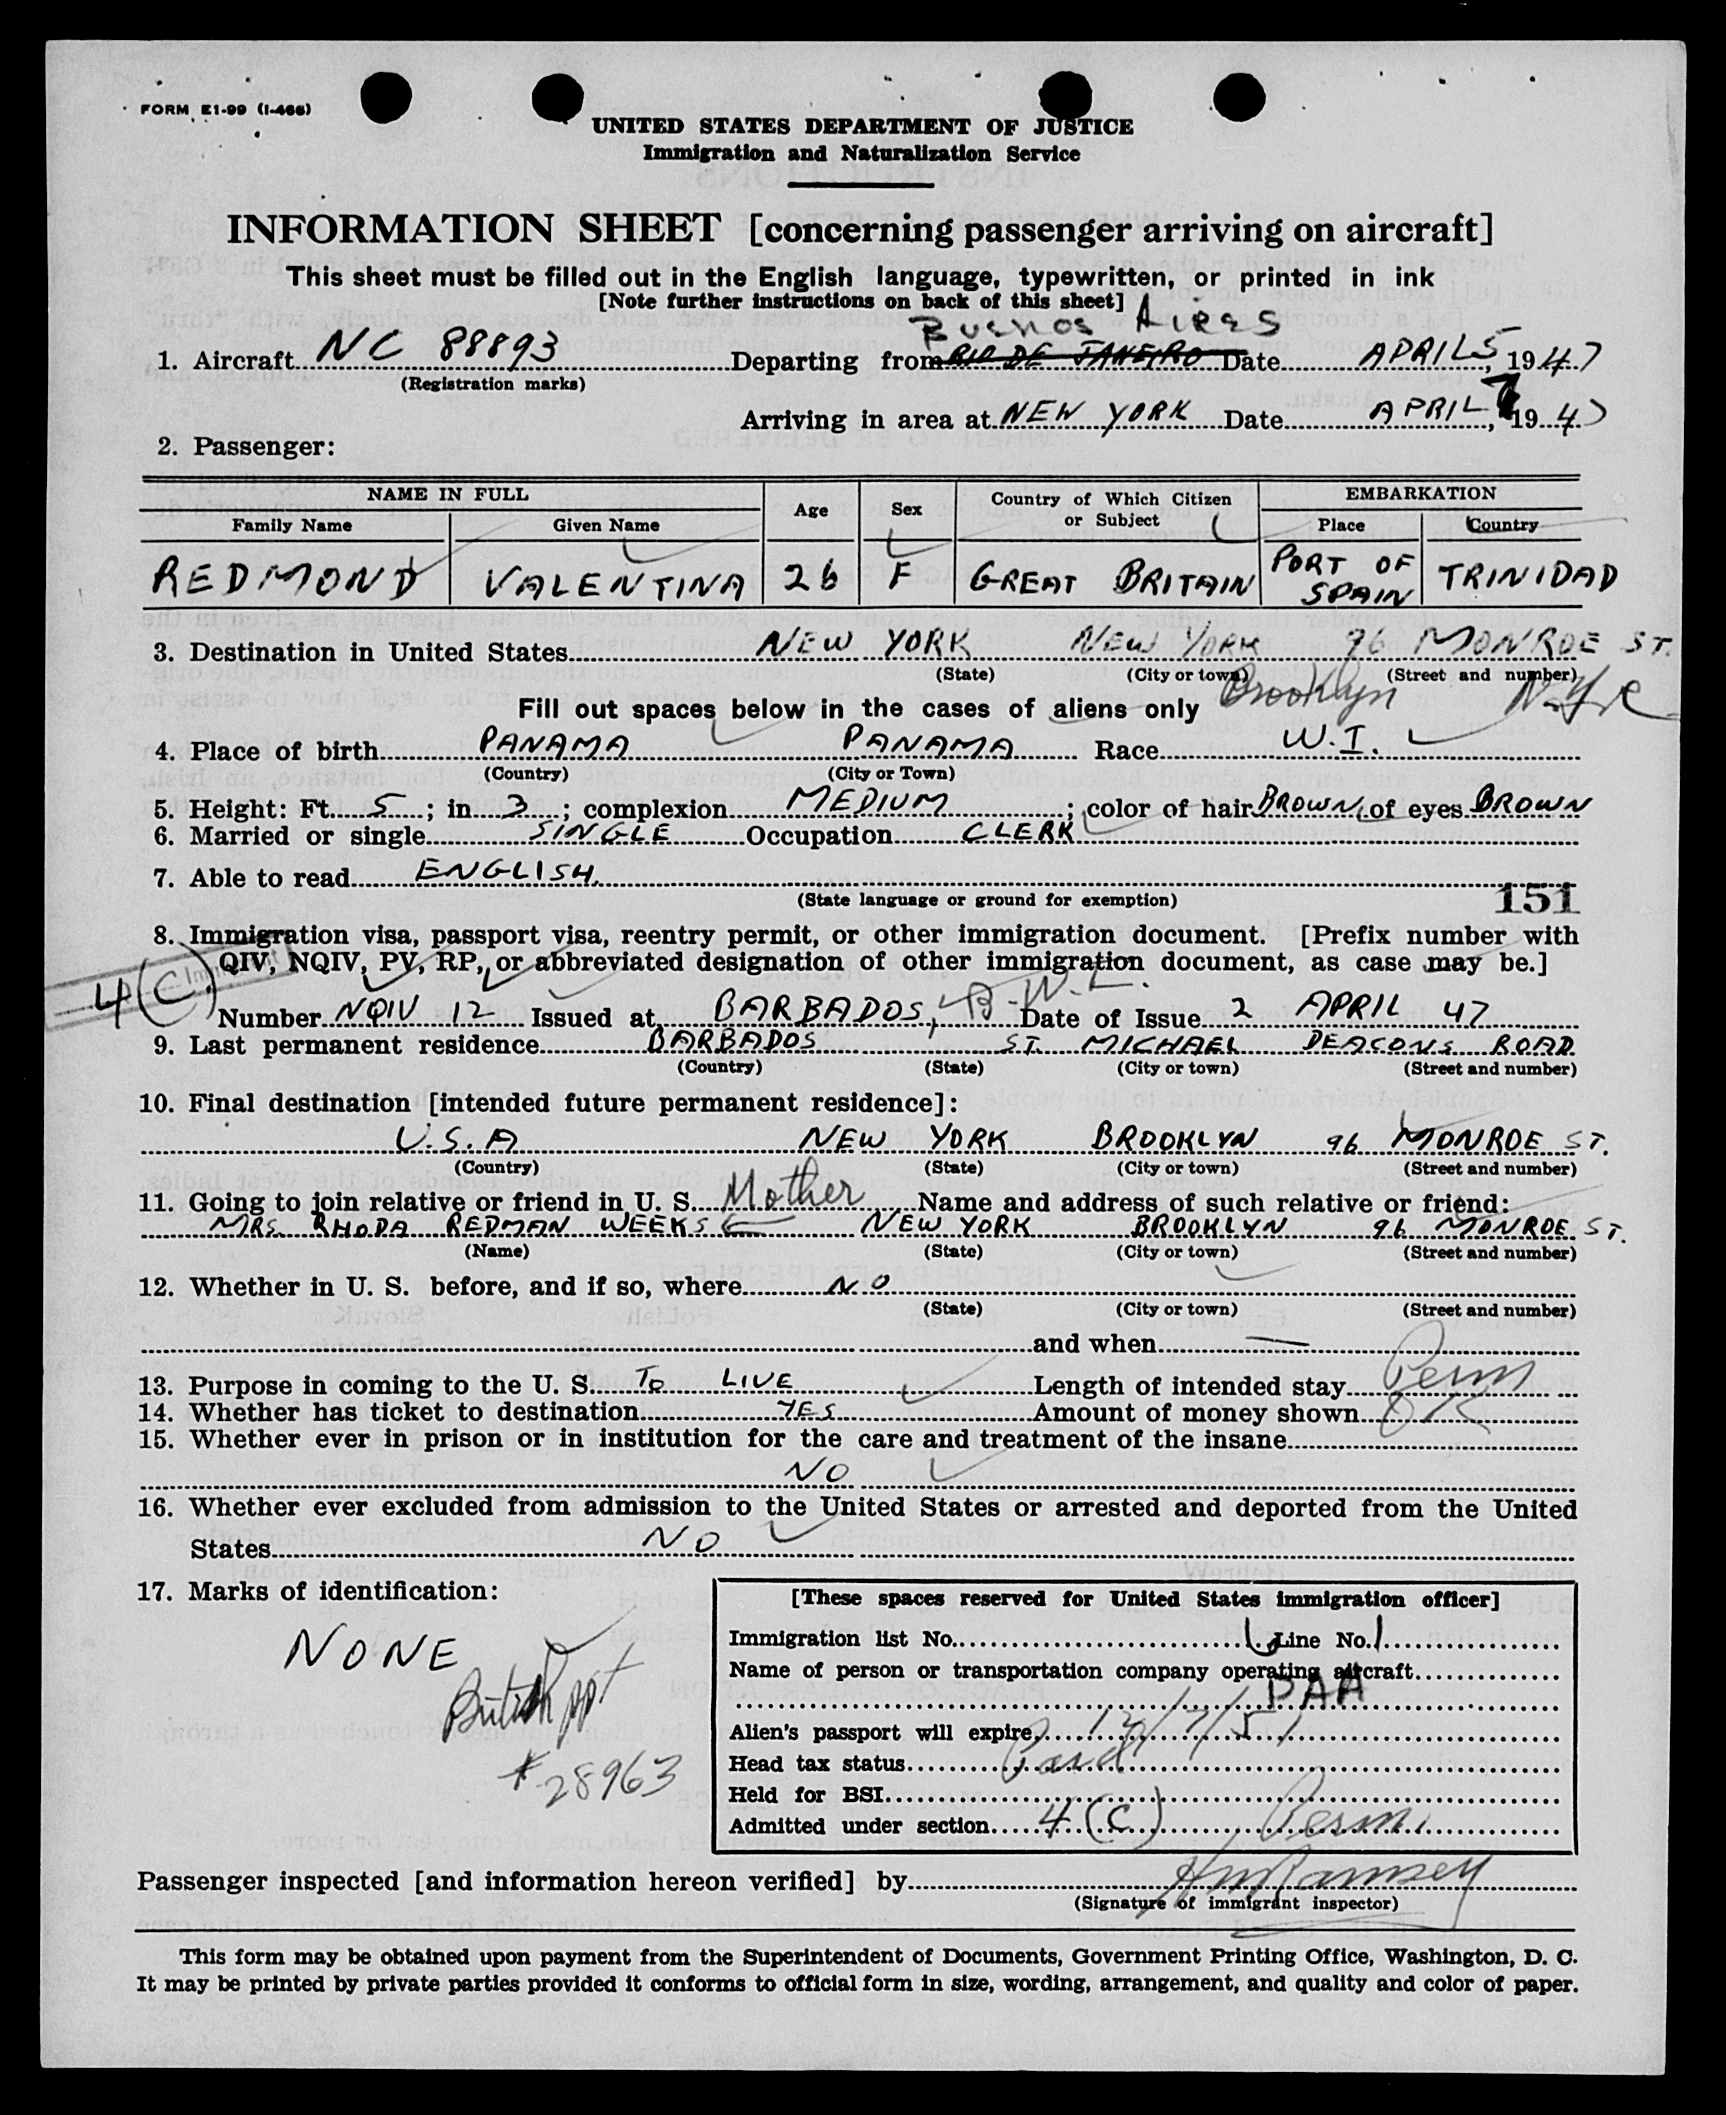 FORM E1-99 (I-466)
UNITED STATES DEPARTMENT OF JUSTICE
Immigration and Naturalization Service
INFORMATION SHEET [concerning passenger arriving on aircraft]
This sheet must be filled out in the English language, typewritten, or printed in ink
[Note further instructions on back of this sheet]
BUENOS AIRES
1. Aircraft NC 88893 Departing from RIO DE JANEIRO Date APRIL 5, 1947
(Registration marks)
Arriving in area at NEW YORK Date APRIL 7, 1947
2. Passenger:
NAME IN FULL Age Sex Country of Which Citizen or Subject EMBARKATION
Family Name Given Name Place Country
REDMOND VALENTINA 26 F GREAT BRITAIN PORT OF SPAIN TRINIDAD
3. Destination in United States NEW YORK NEW YORK 96 MONROE ST.
(State) (City or town) (Street and number)
Brooklyn
Fill out spaces below in the cases of aliens only
4. Place of birth PANAMA PANAMA Race W.I.
(Country) (City or Town)
5. Height: Ft. 5; in. 3; complexion MEDIUM; color of hair BROWN, of eyes BROWN
6. Married or single SINGLE Occupation CLERK
7. Able to read ENGLISH.
(State language or ground for exemption)
151
8. Immigration visa, passport visa, reentry permit, or other immigration document. [Prefix number with
QIV, NQIV, PV, RP, or abbreviated designation of other immigration document, as case may be.]
4(C)
Number NQIV 12 Issued at BARBADOS, B.W.I. Date of Issue 2 APRIL 47
9. Last permanent residence BARBADOS ST. MICHAEL DEACONS ROAD
(Country) (State) (City or town) (Street and number)
10. Final destination [intended future permanent residence]:
U.S.A NEW YORK BROOKLYN 96 MONROE ST.
(Country) (State) (City or town) (Street and number)
11. Going to join relative or friend in U. S. Mother Name and address of such relative or friend:
MRS. RHODA REDMAN WEEKS NEW YORK BROOKLYN 96 MONROE ST.
(Name) (State) (City or town) (Street and number)
12. Whether in U. S. before, and if so, where NO
(State) (City or town) (Street and number)
and when —
13. Purpose in coming to the U. S. TO LIVE Length of intended stay Perm
14. Whether has ticket to destination YES Amount of money shown OK
15. Whether ever in prison or in institution for the care and treatment of the insane
NO
16. Whether ever excluded from admission to the United States or arrested and deported from the United
States NO
17. Marks of identification:
NONE
British ppt
# 28963
[These spaces reserved for United States immigration officer]
Immigration list No. Line No. 1
Name of person or transportation company operating aircraft
PAA
Alien's passport will expire 12/7/51
Head tax status Paid
Held for BSI
Admitted under section 4(C) Perm.
Passenger inspected [and information hereon verified] by HM Ramsey
(Signature of immigrant inspector)
This form may be obtained upon payment from the Superintendent of Documents, Government Printing Office, Washington, D. C.
It may be printed by private parties provided it conforms to official form in size, wording, arrangement, and quality and color of paper.